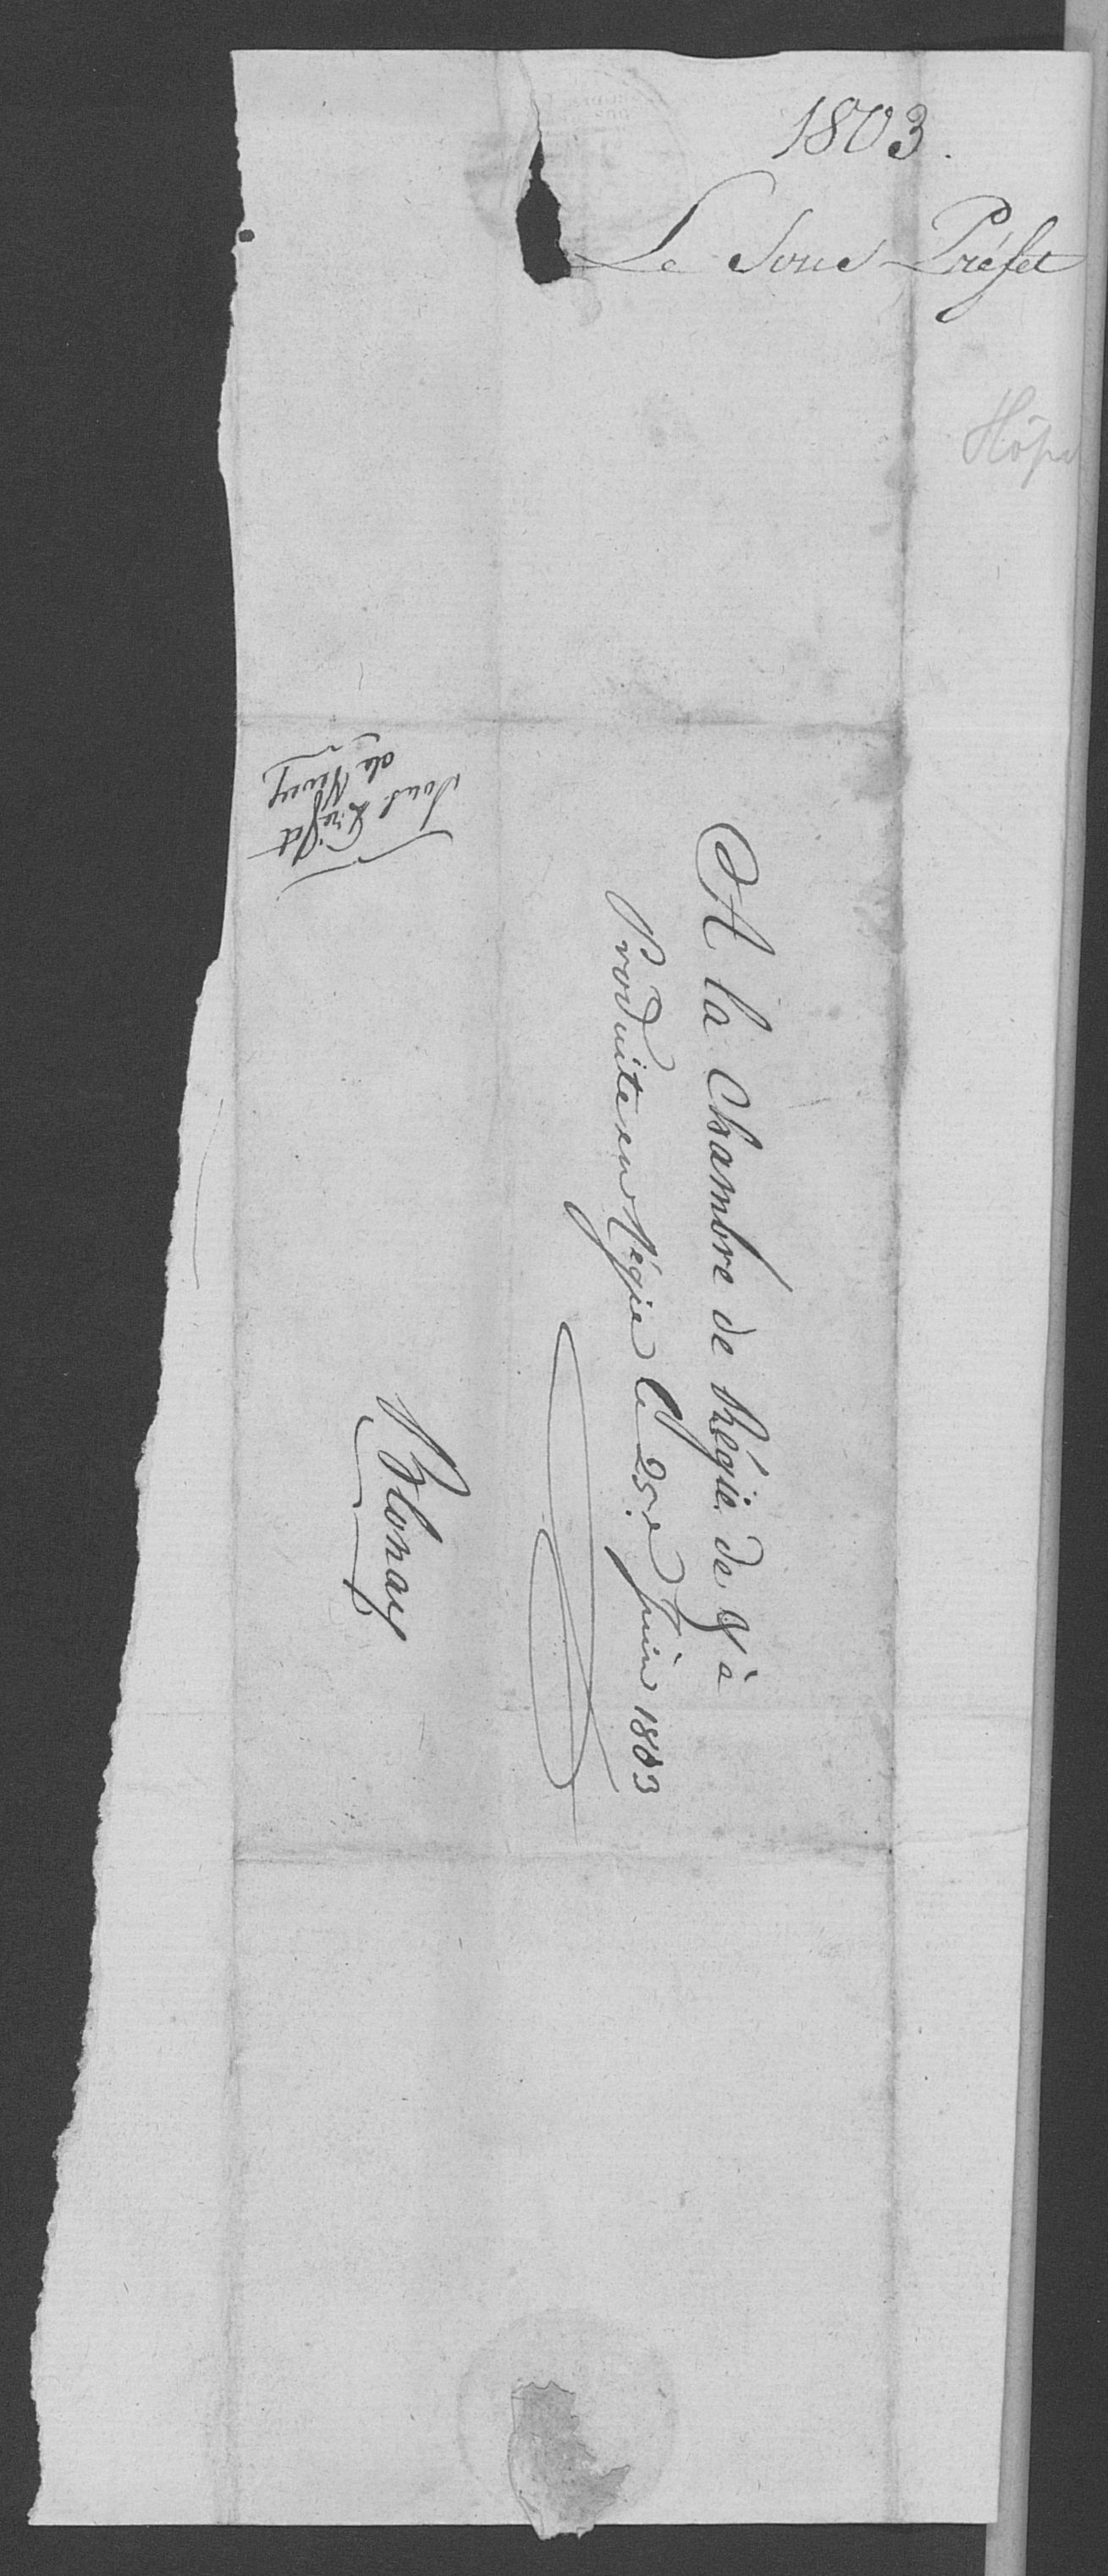 1803.
Le Sous-Préfet
A la Chambre de Régie de & à
Produite en Régie le 25.e Juin 1803
Blonay
Sous Préfet
de Vevey